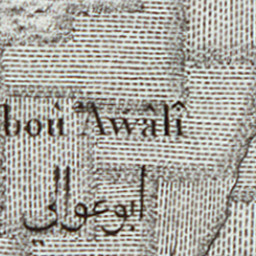 boù 'Awâlî
ابوعوالي